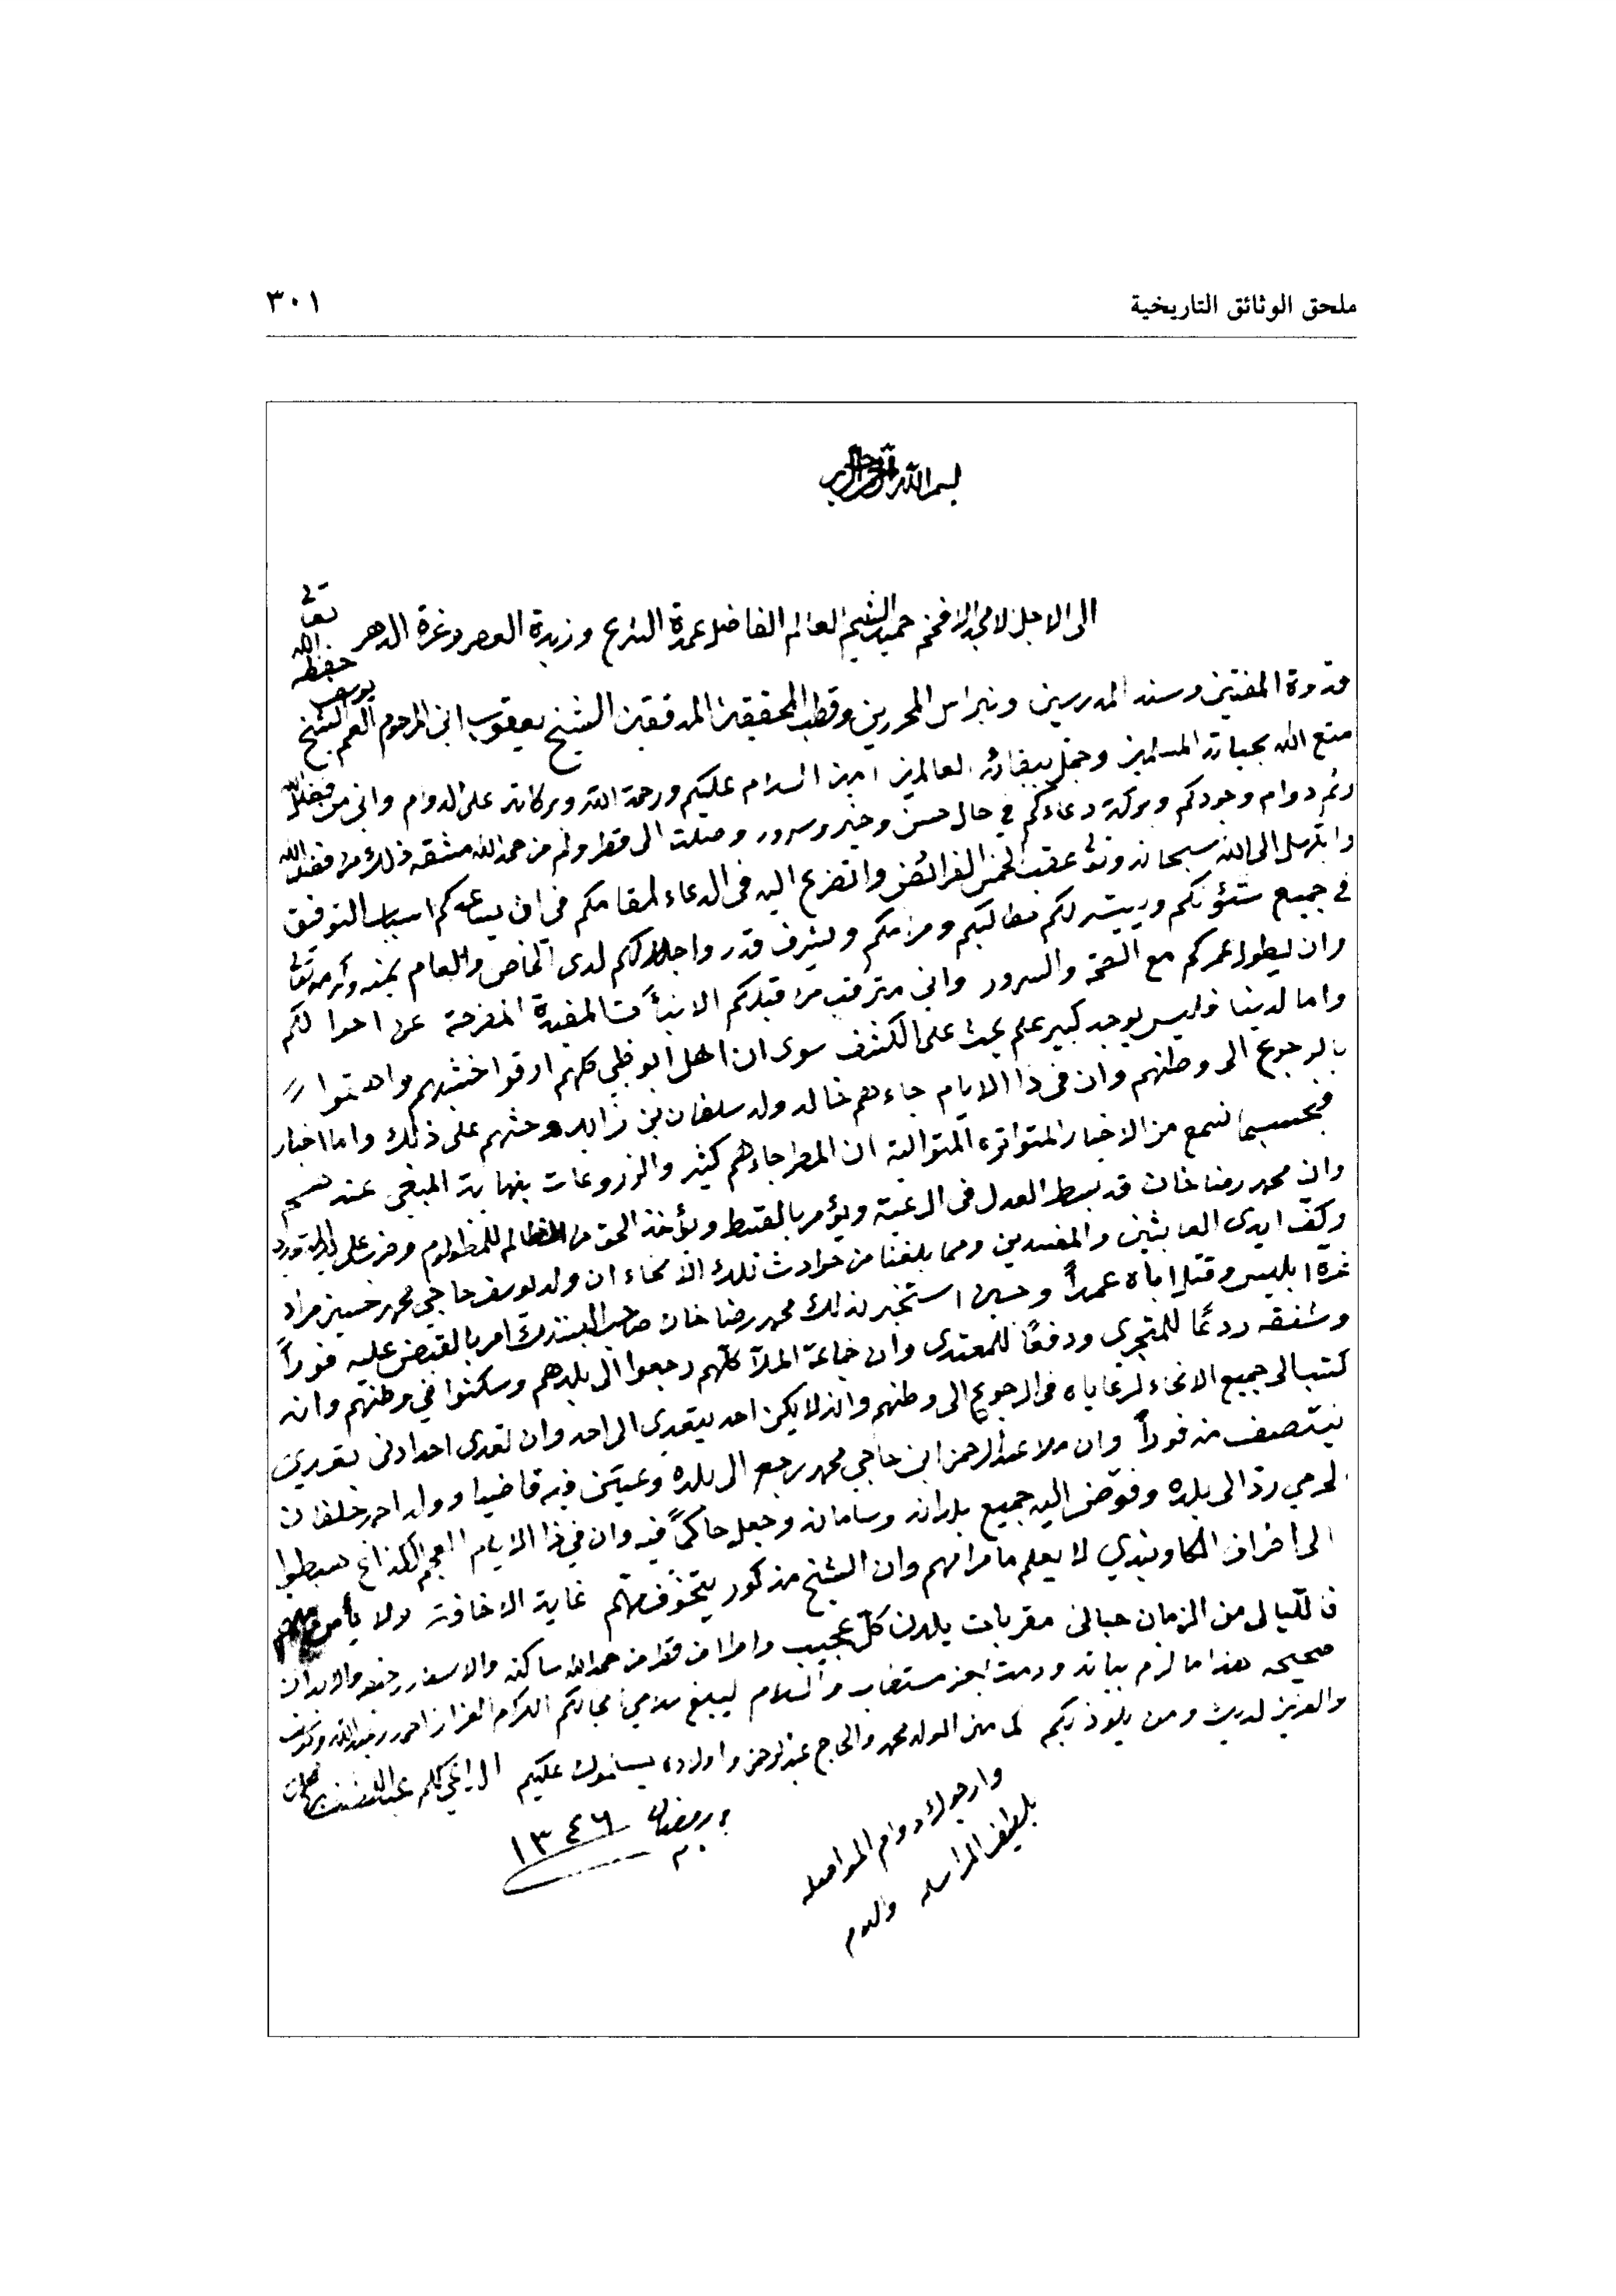 ملحق الوثائق التاريخية ٣٠١
بسم الله الرحمن الرحيم
الى الاجل الامجد الافخم حميد الشيم العالم الفاضل عمدة الشرع وزبدة العصر وغرة الدهر
قدوة المفتين وسند المدرسين ونبراس المحررين وقطب المحققين المدققين الشيخ يعقوب ابن المرحوم العم الشيخ يوسف حفظه الله تعالى
متع الله بحياته المسلمين وجمل ببقائه العالمين امين السلام عليكم ورحمة الله وبركاته على الدوام واني من فضل الله
وثم دوام وجودكم وبركة دعاءكم في حال حسن وخير وسرور وصلت الى قطر ولم من حمد الله مشقه ذلك من فضل الله
وابتهل الى الله سبحانه وتعالى عقب الخمس الفرائض واتضرع اليه في الدعاء لمقامكم في ان يساعدكم اسباب التوفيق
في جميع شئونكم وييسر لكم مطالبكم ومرامكم ويشرف قدر واجلالكم لدى الخاص والعام بمنه وكرمه تعالى
وان يطول عمركم مع الصحة والسرور واني مترقب من قبلكم الانبآت المفيدة المفرحة عن احوالكم
واما لدينا فليس يوجد كبير علم يحث على الكشف سوى ان اهل ابوظبي كلهم ارقوا خشبهم واهتموا
بالرجوع الى وطنهم وان في ذا الايام جاءهم خالد ولد سلطان بن زايد وحثهم على ذلك واما اخبار
فبحسبما نسمع من الاخبار المتواتره المتوالية ان المطر جاءهم كثير والزروعات بنهاية المبغى عندهم
وان محمد رضا خان قد بسط العدل في الرعية ويؤمر بالقسط ويؤخذ الحق من الظالم للمظلوم
وكف ايدى العابثين والمفسدين ومما بلغنا من حوادث تلك الانحاء ان ولد يوسف حاجي محمد حسين مراد
غره ابليس وقتل اباه عمداً وحين استخبر بذلك محمد رضا خان صاحب البستك امر بالقبض عليه فوراً
وشنقه ردعًا للمتجرى ودفعًا للمعتدى وان جماعة الملا كلهم رجعوا الى بلدهم وسكنوا في وطنهم وانه
كتب الى جميع الانحاء لرعاياه في الرجوع الى وطنهم وانه لا يكن احد يتعدى الى احد وان تعدى احد ادنى تعدي
ينتصف منه فوراً وان ملا عبد الرحمن ابن حاجي محمد رجع الى بلده وعيّن فيه قاضيا وولد احمد خلفان
لحرمي ردّ الى بلده وفوّض اليه جميع بلدانه وسامانه وجعل حاكماً فيه وان في ذا الايام العجم
الى اطراف الكاوبندي لا يعلم ما مرامهم وان الشيخ مذكور يتخوف منهم غاية الاخافة ولا يأمن
فالليالى من الزمان حبالى مقربات يلدن كل عجيب واطراف قطر من حمد الله ساكنه والاسعار رخيصه والابدان
صحيحه هذا ما لزم بيانه ودمت بعز مستطاب والسلام ليبلغ سلامي انجالكم الكرام العزاز احمد
والعزيز لديك ومن يلوذ بكم كما من الولد محمد والحاج عبد الرحمن واولاده يسلمون عليكم الداعي لكم
وارجو لك دوام المواصله
بلطيف المراسله والسلام
رمضان ١٣٤٦